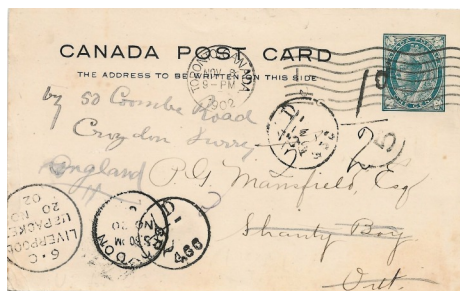 CANADA POST CARD
THE ADDRESS TO BE WRITTEN ON THIS SIDE
TORONTO CANADA
NOV 8
9-PM
1902
by 50 Coombe Road
Croydon Surrey
England
P.G. Mansfield, Esq
Shanty Bay
Ont.
6·C
LIVERPOOL
US PACKET
20 NO
02
CROYDON
NO 20
02